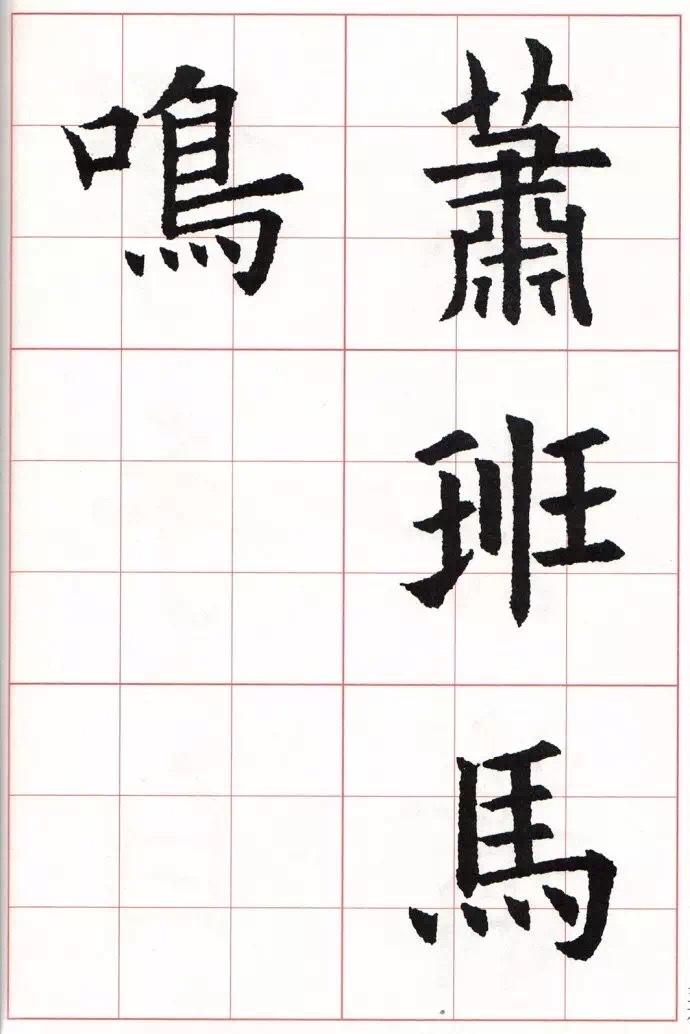 蕭班馬
鳴